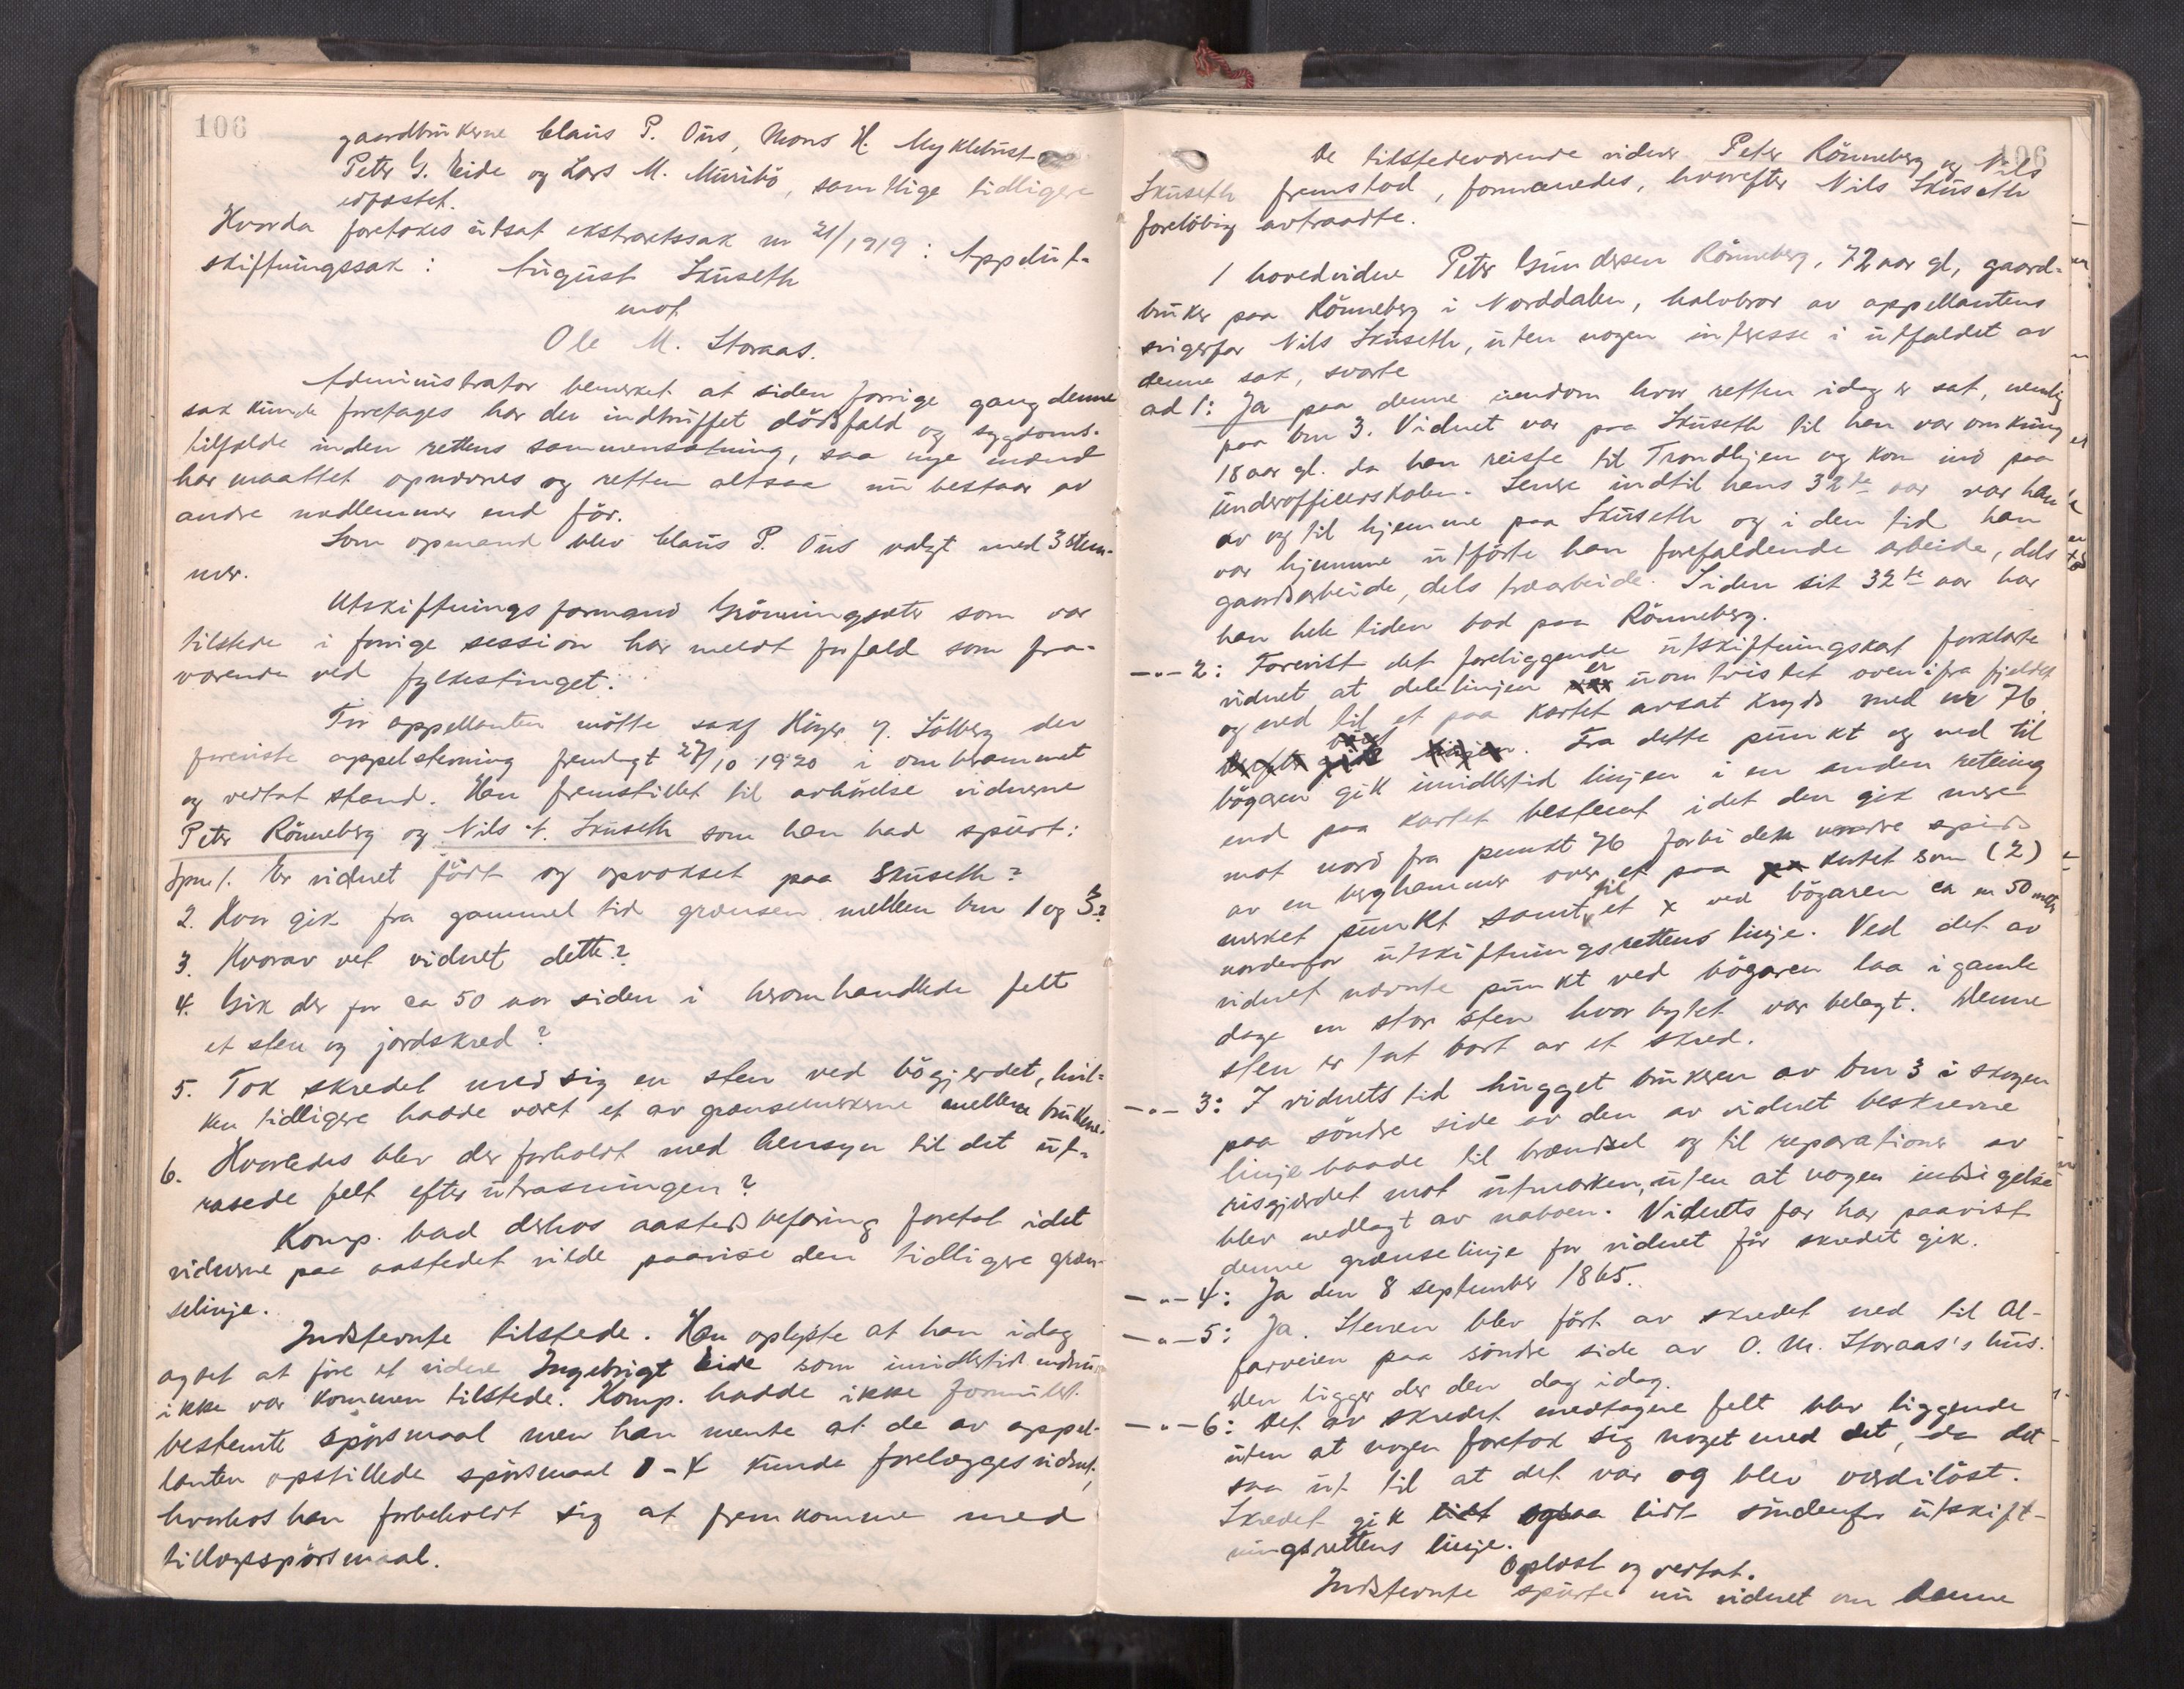 106
gaardbrukerne Claus P. Ous, Mons H. Myklebust
Peter G. Eide og Lars M. Muribö, samtlige tidligere
edfæstet.
Hvorda foretokes utsat ekstraretssak nr 21/1919: Appelut-
skiftningssak: August Skuseth
mot
Ole M. Storaas.
Administrator bemerket at siden forrige gang denne
sak kunde foretages har der indtruffet dödsfald og sygdoms-
tilfælde inden rettens sammensætning, saa nye mænd
har maattet opnævnes og retten altsaa nu bestaar av
andre medlemmer end för.
Som opmand blev Claus P. Ous valgt med 3 stem-
mer.
Utskiftningsformand Grönningsæter som var
tilstede i forrige session har meldt forfald som fra-
værende ved fylkestinget.
For appellanten mötte sakf Höyer g. Solberg der
foreviste appelstevning fremlagt 27/10 1920 i ombrammet
og vertat stand. Han fremstillet til avhörelse vidnerne
Peter Rönneberg og Nils A. Skuseth som han bad spurt:
Spm 1. Er vidnet född og opvokset paa Skuseth?
2. Hvor gik fra gammel tid grænsen mellem bnr 1 og 3?
3. Hvorav vet vidnet dette?
4. Gik der for ca 50 aar siden i heromhandlede felt
et sten og jordskred?
5. Tok skredet med sig en sten ved bögjerdet, hvil-
ken tidligere hadde vært et av grænsemerkerne mellem brukene.
6. Hvorledes blev der forholdt med hensyn til det ut-
rasede felt efter utrasningen?
Komp. bad derhos aastedsbefaring foretat idet
vidnerne paa aastedet vilde paavise den tidligere græn-
selinje.
Indstevnte tilstede. Han oplyste at han idag
agtet at före et vidne Ingebrigt Eide som imidlertid endnu
ikke var kommen tilstede. Komp. hadde ikke formulert
bestemte spörsmaal men han mente at de av appel-
lanten opstillede spörsmaal 1-4 kunde forelægges vidnet,
hvorhos han forbeholdt sig at fremkomme med
tillægsspörsmaal.
106
De tilstedeværende vidner Peter Rönneberg og Nils
Skuseth fremstod, formanedes, hvorefter Nils Skuseth
forelöbig avtraadte.
1 hovedvidne Peter Gundersen Rönneberg, 72 aar gl, gaard-
bruker paa Rönneberg i Norddalen, halvbror av appellantens
svigerfar Nils Skuseth, uten nogen interesse i utfaldet av
denne sak, svarte
ad 1: Ja paa denne eiendom hvor retten idag er sat, nemlig
paa bnr 3. Vidnet var paa Skuseth til han var omkring
18 aar gl. da han reiste til Trondhjem og kom ind paa
underofficerskolen. Senere indtil hans 32te aar var han
av og til hjemme paa Skuseth og i den tid han
var hjemme utförte han forefaldende arbeide, dels
gaardsarbeide, dels træarbeide. Siden sit 32te aar har
han hele tiden bod paa Rönneberg.
—"— 2: Forevist det foreliggende utskiftningskart forklarte
vidnet at delelinjen er uomtvistet ovenifra fjeldet
og ned til et paa kartet avsat kryds med nr 76.
Fra dette punkt og ned til
bögaren gik imidlertid linjen i en anden retning
end paa kartet bestemt idet den gik mere
mot nord fra punkt 76 forbi den nordre spids
av en berghammer over et paa kartet som (2)
merket punkt samt til et x ved bögaren ca 50 meter
nordenfor utskiftningsrettens linje. Ved det av
vidnet nævnte punkt ved bögaren laa i gamle
dage en stor sten hvor bytet var belagt. Denne
sten er tat bort av et skred.
—"— 3: I vidnets tid hugget brukeren av bnr 3 i skogen
paa söndre side av den av vidnet beskrevne
linje baade til brændsel og til reparationer av
risgjerdet mot utmarken, uten at nogen indsigelse
blev nedlagt av naboen. Vidnets far har paavist
denne grænselinje for vidnet för skredet gik.
—"— 4: Ja den 8 september 1865.
—"— 5: Ja. Stenen blev fört av skredet ned til Al-
farveien paa söndre side av O. M. Storaas's hus.
Den ligger der den dag idag.
—"— 6: Det av skredet medtagne felt blev liggende
uten at nogen foretok sig noget med det, da det
saa ut til at det var og blev værdilöst.
Skredet gik ogsaa lidt söndenfor utskift-
ningsrettens linje.
Oplæst og vertat.
Indstevnte spurte nu vidnet om denne